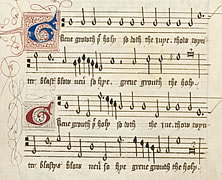 Grene growth yͤ holy so doth the iuye. thow wyn
ter blastys blow neu' so hye. grene growth the holy.
Grene growth yͤ holy so doth the iue. thow wyn
ter blastys blow neu' so hye. grene growth the holy.